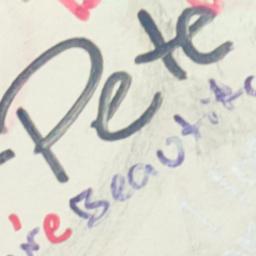 Pete
're Beautif